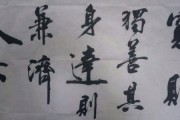 則
獨善其
身達則
兼濟